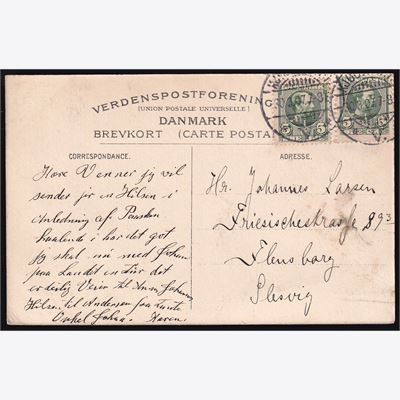 VERDENSPOSTFORENING
(UNION POSTALE UNIVERSELLE)
DANMARK
BREVKORT (CARTE POSTALE)
CORRESPONDANCE.
Kære Venner jeg vil
sender jer en Hilsen i
Anledning af Pausken
i har det got
jeg skal nu med Johan
paa Landet en Tur det
er dejlig Veir til Anna Johannes
Hilsen til Andersen fra Tante
Onkel Johan. Karen.
ADRESSE.
Hr. Johannes Larsen
Friesischestrasse 893
Flensborg
Slesvig
5
5